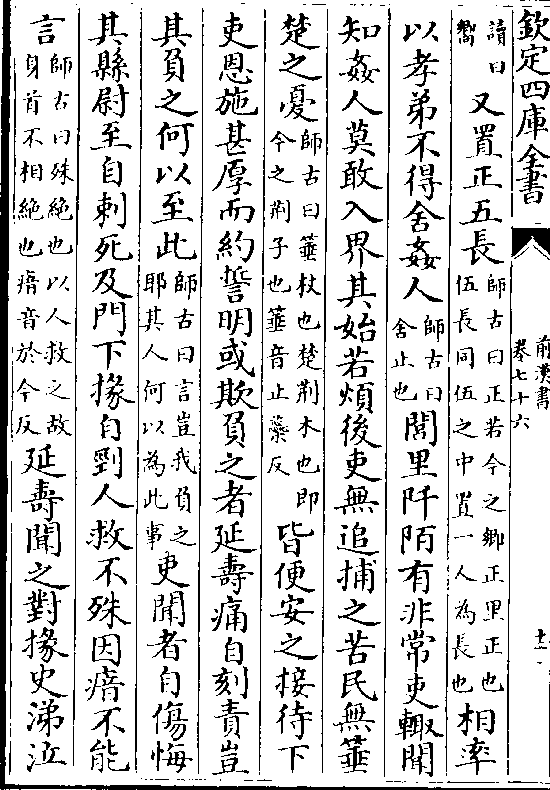 欽定四庫全書
前漢書
卷七十六
十一
讀曰嚮又置正五長師古曰正若今之鄉正里正也伍長同伍之中置一人為長也相率
以孝弟不得舍姦人師古曰舍止也閭里阡陌有非常吏輒聞
知姦人莫敢入界其始若煩後吏無追捕之苦民無箠
楚之憂師古曰箠杖也楚荆木也即今之荆子也箠音止蘂反皆便安之接待下
吏恩施甚厚而約誓明或欺負之者延壽痛自刻責豈
其負之何以至此師古曰言豈我負之耶其人何以為此事吏聞者自傷悔
其縣尉至自刺死及門下掾自剄人救不殊因瘖不能
言師古曰殊絶也以人救之故身首不相絶也瘖音於今反延壽聞之對掾史涕泣